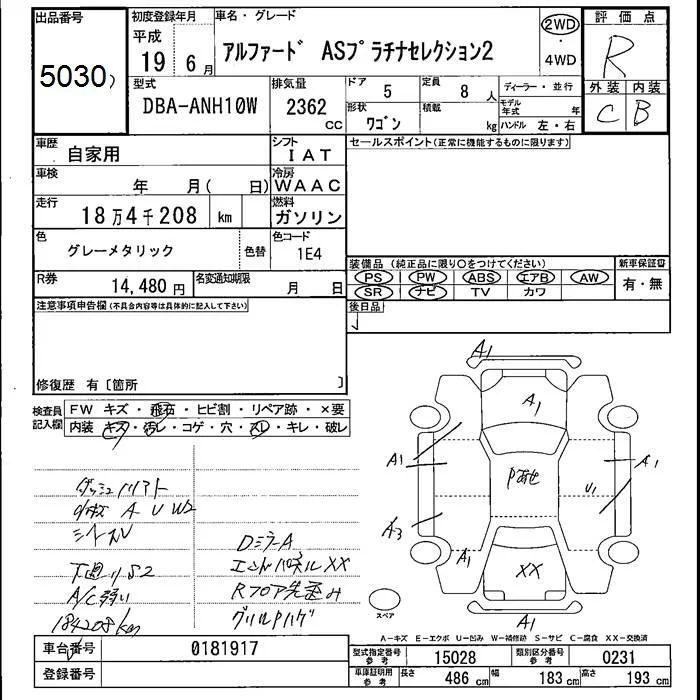 出品番号
5030
初度登録年月
平成
19 6月
車名・グレード
アルファード ASプラチナセレクション2
2WD
・
4WD
評価点
R
外装 内装
C B
型式
DBA-ANH10W
排気量
2362
cc
ドア
5
定員
8 人
形状
ワゴン
積載
kg
ディーラー・並行
モデル年式 年
ハンドル 左・右
車歴
自家用
シフト
IAT
車検
年 月( 日)
冷房
WAAC
走行
18万4千208 km
燃料
ガソリン
色
グレーメタリック
色替
色コード
1E4
R券
14,480円
名変通知期限
月 日
セールスポイント(正常に機能するものに限ります)
装備品(純正品に限り〇をつけてください)
PS PW ABS エアB AW
SR ナビ TV カワ
新車保証書
有・無
後日品
注意事項申告欄(不具合内容等は具体的に記入して下さい)
修復歴 有〔箇所 〕
検査員記入欄
FW キズ・飛石・ヒビ割・リペア跡・×要
内装 キズ・汚レ・コゲ・穴・スレ・キレ・破レ
ダッシュリフト
A U W2
下廻りS2
A/C弱い
184208km
DミラーA
エンドパネルXX
Rフロア先歪み
グリルPハゲ
A1
A1
A1
A1
A3
A1
U1
Pあせ
XX
A1
スペア
A-キズ E-エクボ U-凹み W-補修跡 S-サビ C-腐食 XX-交換済
車台番号
0181917
登録番号
型式指定番号 参考
15028
類別区分番号 参考
0231
車庫証明用 参考
長さ 486 cm
幅 183 cm
高さ 193 cm